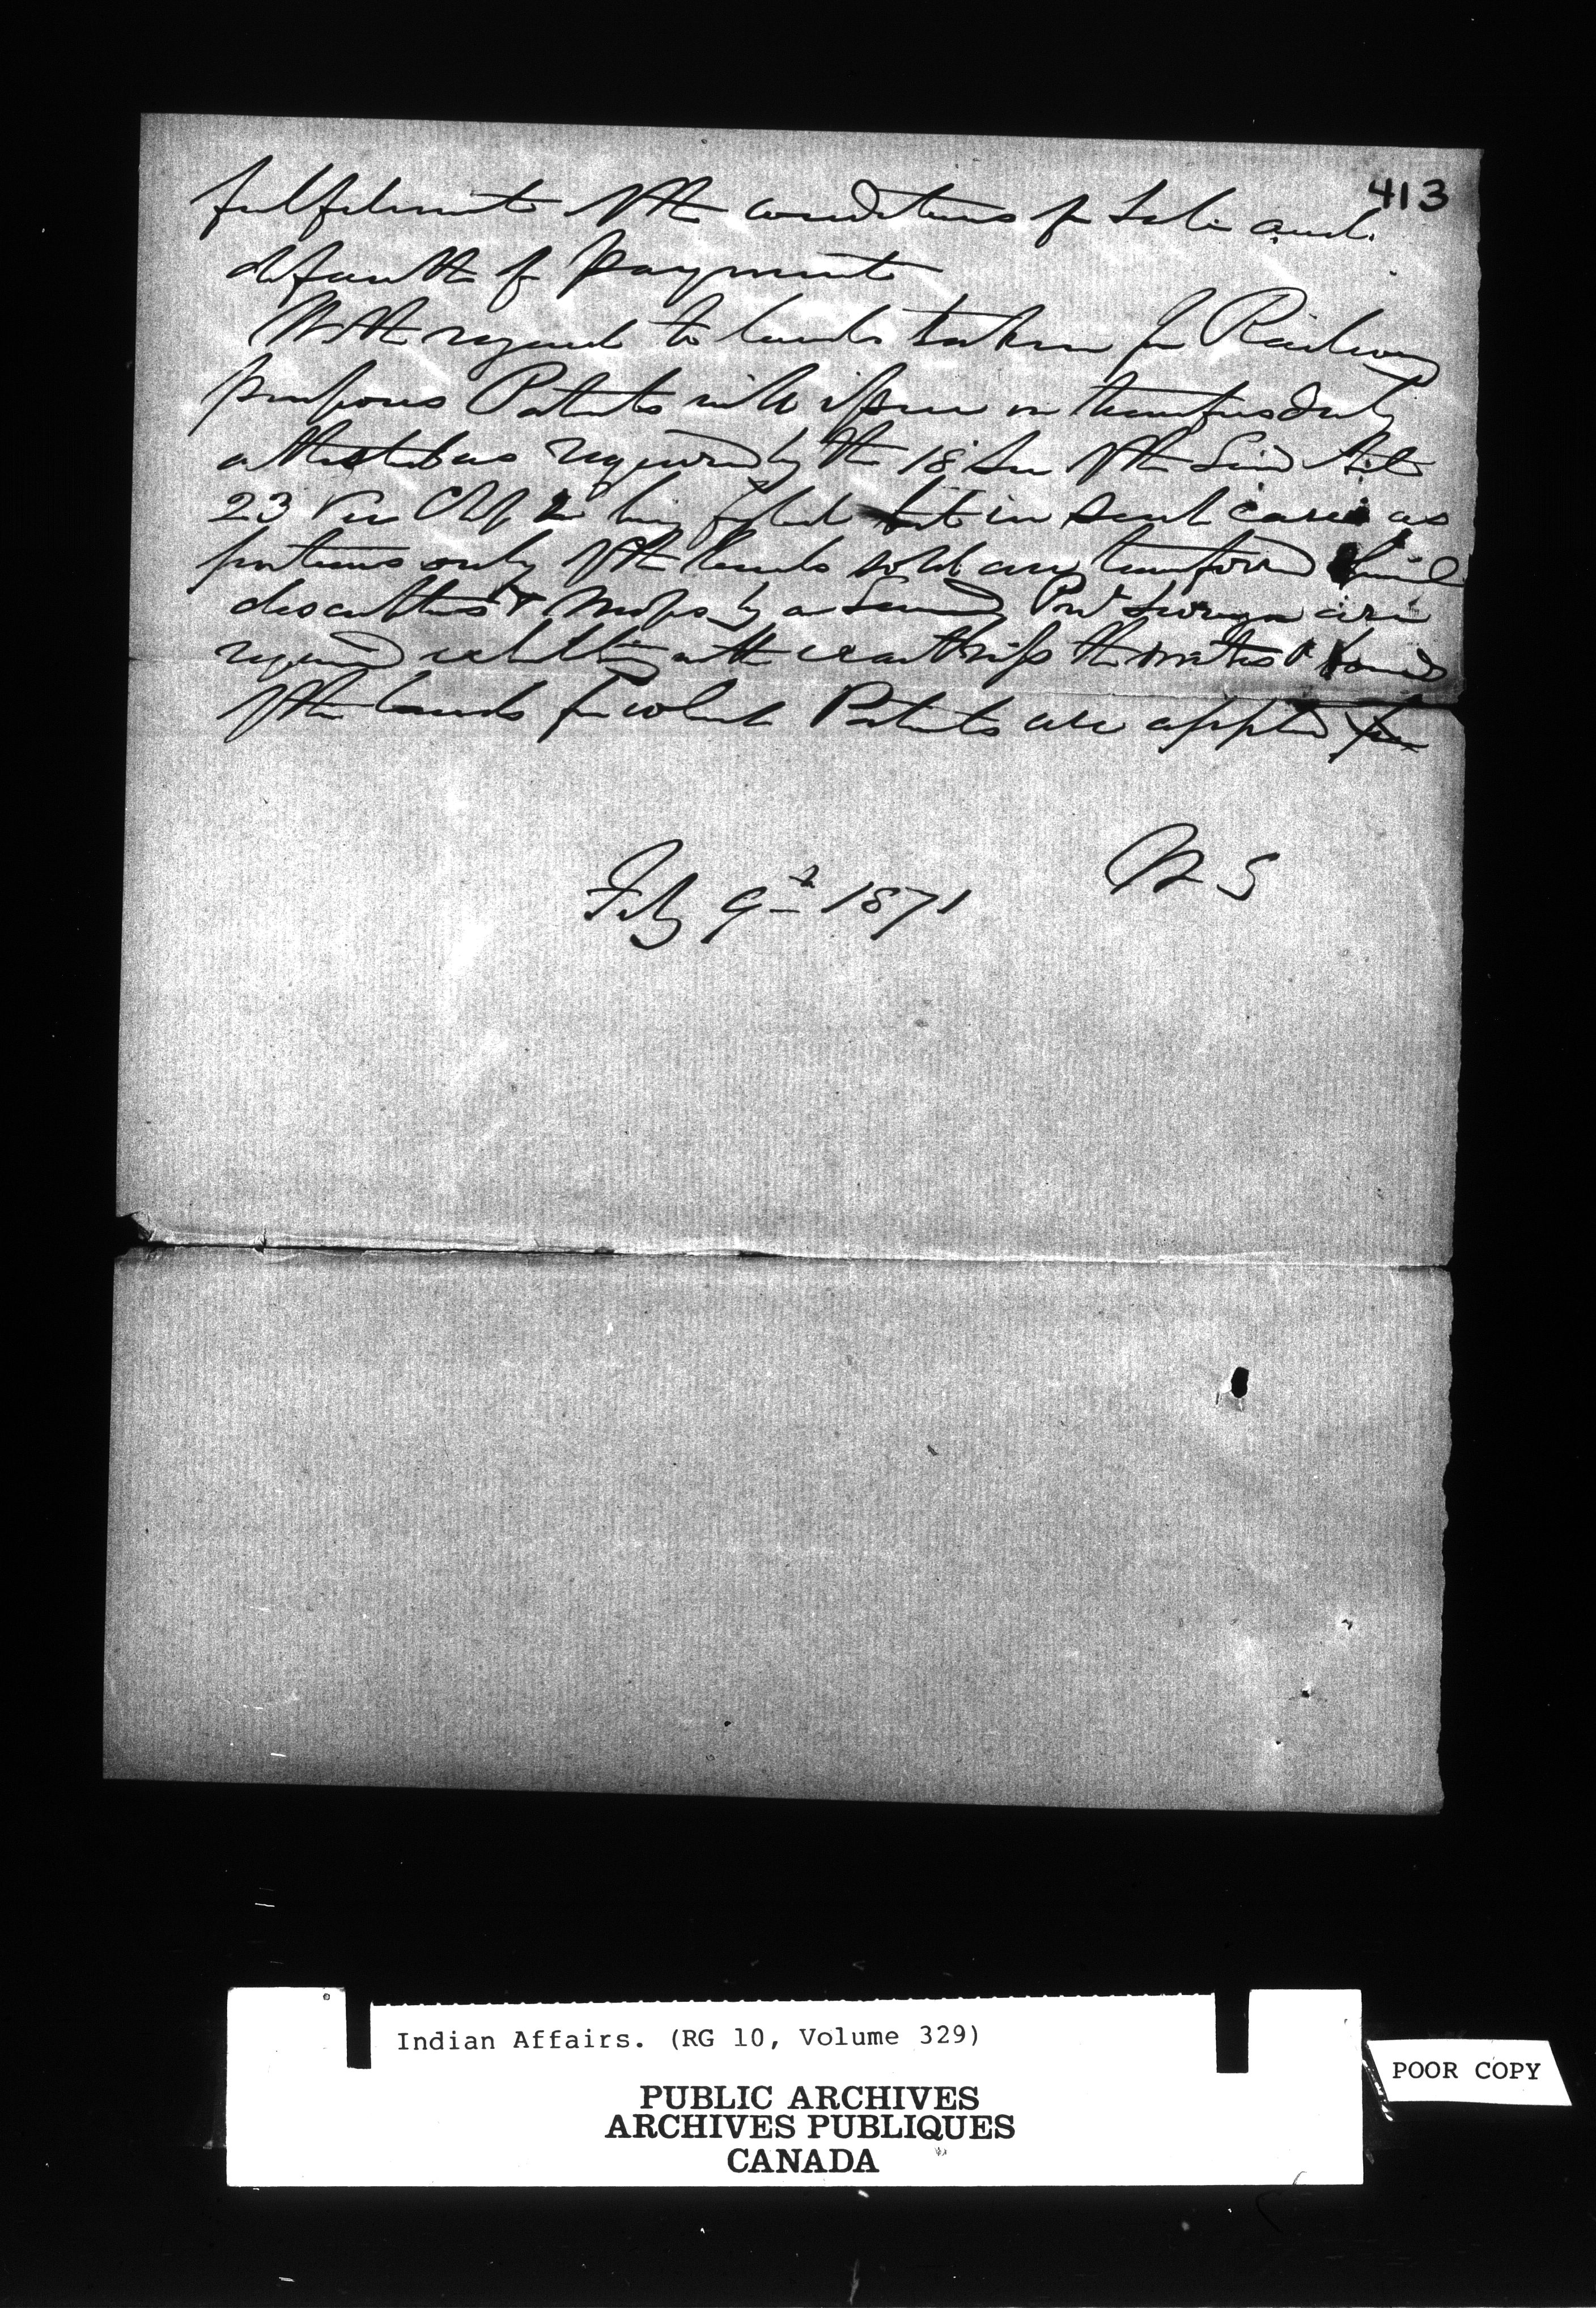 413
fulfilment of the conditions of Sale and
default of payment
With regard to lands taken for Railway
purposes Patents will issue on transfers duly
attested as required by the 18 Sec of the Land Act
23 Vic Chap 2 being filed but in such cases as
portions only of the lands sold are transferred
descriptions & Maps by a Licensed Prov Surveyor are
required exhibiting the metes & bounds
of the lands for which Patents are applied for
Feby 9th 1871
Indian Affairs. (RG 10, Volume 329)
PUBLIC ARCHIVES
ARCHIVES PUBLIQUES
CANADA
POOR COPY